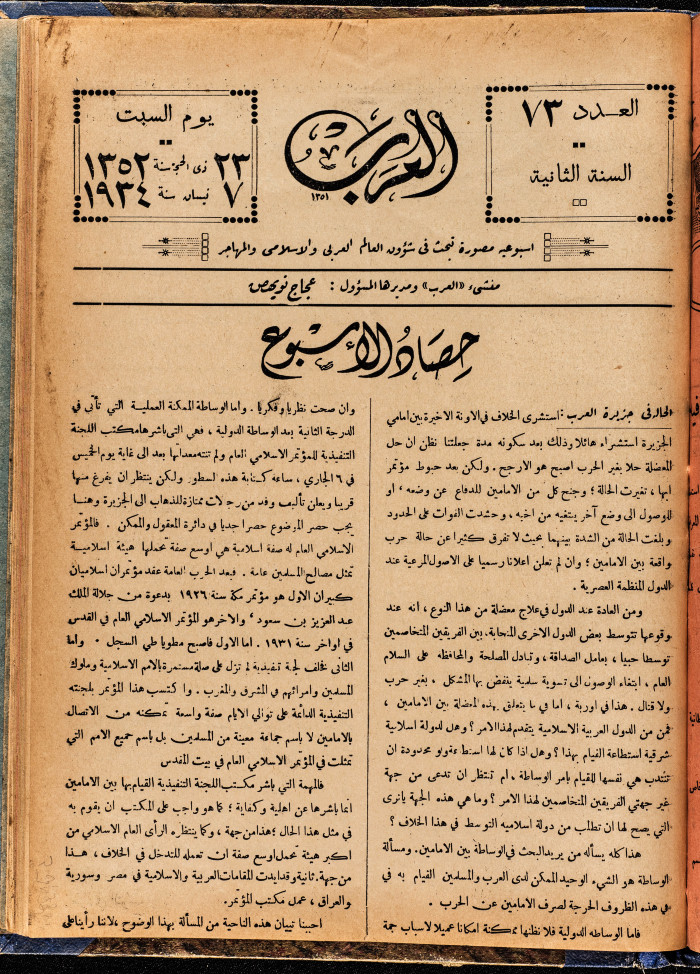 العدد ٧٣
السنة الثانية
العرب
١٣٥١
يوم السبت
٢٣ ذى الحجة سنة ١٣٥٢
٧ نيسان سنة ١٩٣٤
اسبوعيه مصورة تبحث فى شؤون العالم العربى والاسلامى والمهاجر
منشىء «العرب» ومديرها المسؤول : عجاج نويهض
حصاد الأسبوع
الحالة فى جزيرة العرب : استشرى الخلاف فى الاونة الاخيرة بين امامي
الجزيرة استشراء هائلا وذلك بعد سكونه مدة جعلتنا نظن ان حل
المعضلة حلا بغير الحرب اصبح هو الارجح . ولكن بعد حبوط مؤتمر
ابها ، تغيرت الحالة ؛ وجنح كل من الامامين للدفاع عن وضعه ، او
للوصول الى وضع آخر يبتغيه من اخيه ، وحشدت القوات على الحدود
وبلغت الحالة من الشدة بينهما بحيث لا تفرق كثيرا عن حالة حرب
واقعة بين الامامين ؛ وان لم تعلن اعلانا رسميا على الاصول المرعية عند
الدول المنظمة العصرية .
ومن العادة عند الدول في علاج معضلة من هذا النوع ، انه عند
وقوعها تتوسط بعض الدول الاخرى المتحابة . بين الفريقين المتخاصمين
توسطا حبيا ، بعامل الصداقة ، وتبادل المصلحة والمحافظه على السلام
العام ، ابتغاء الوصول الى تسوية سلمية ينفض بها المشكل ، بغير حرب
ولا قتال . هذا في اوربة ، اما في ما يتعلق بهذه المعضلة بين الامامين ،
فمن من الدول العربية الاسلامية يتقدم لهذا الامر ؟ وهل لدولة اسلامية
شرقية استطاعة القيام بهذا ؟ وهل اذا كان لها استطاعة ولو محدودة ان
تنتدب هي نفسها للقيام بامر الوساطة ، ام تنتظر ان تدعى من جهة
غير جهتي الفريقين المتخاصمين لهذا الامر ؟ وما هي هذه الجهة يا ترى
التي يصح لها ان تطلب من دولة اسلاميه التوسط في هذا الخلاف ؟
هذا كله يسأله من يريد البحث في الوساطة بين الامامين . ومسألة
الوساطة هو الشيء الوحيد الممكن لدى العرب والمسلمين القيام به في
في هذه الظروف الحرجة لصرف الامامين عن الحرب .
فاما الوساطه الدولية فلا نظنها ممكنة امكانا عمليا لاسباب جمة
وان صحت نظريا وفكريا . واما الوساطة الممكنة العملية التي تأتي في
الدرجة الثانية بعد الوساطة الدولية ، فهي التى باشرها مكتب اللجنة
التنفيذية للمؤتمر الاسلامي العام ولم تنته معداتها بعد الى غاية يوم الخميس
في ٦ الجاري ، ساعة كتابة هذه السطور ولكن ينتظر ان يفرغ منها
قريبا ويعلن تأليف وفد من رجالات ممتازة للذهاب الى الجزيرة وهنا
يجب حصر الموضوع حصرا جديا في دائرة المعقول والممكن . فالمؤتمر
الاسلامي العام له صفة اسلامية هي اوسع صفة تحملها هيئة اسلامية
تمثل مصالح المسلمين عامة . فبعد الحرب العامة عقد مؤتمران اسلاميان
كبيران الاول هو مؤتمر مكة سنة ١٩٢٦ بدعوة من جلالة الملك
عبد العزيز بن سعود ، والاخر هو المؤتمر الاسلامي العام في القدس
في اواخر سنة ١٩٣١ . اما الاول فاصبح مطويا طي السجل . واما
الثانى فخلف لجنة تنفيذية لم تزل على صلة مستمرة بالامم الاسلامية وملوك
المسلمين وامرائهم في المشرق والمغرب . واكتسب هذا المؤتمر بلجنته
التنفيذية الدائمة على توالي الايام صفة واسعة تمكنه من الاتصال
بالامامين لا باسم جماعة معينة من المسلمين بل باسم جميع الامم التي
تمثلت في المؤتمر الاسلامي العام في بيت المقدس
فالمهمة التي باشر مكتب اللجنة التنفيذية القيام بها بين الامامين
انما باشرها عن اهلية وكفاية ؛ كما هو واجب على المكتب ان يقوم به
في مثل هذا الحال ؛ هذا من جهة ، وكما ينتظره الرأى العام الاسلامي من
اكبر هيئة تحمل اوسع صفة ان تعمله للتدخل في الخلاف ، هذا
من جهة . ثانية وقد ايدت المقامات العربية والاسلامية في مصر وسورية
والعراق ، عمل مكتب المؤتمر .
احببنا تبيان هذه الناحية من المسألة بهذا الوضوح ، لاننا رأينا على